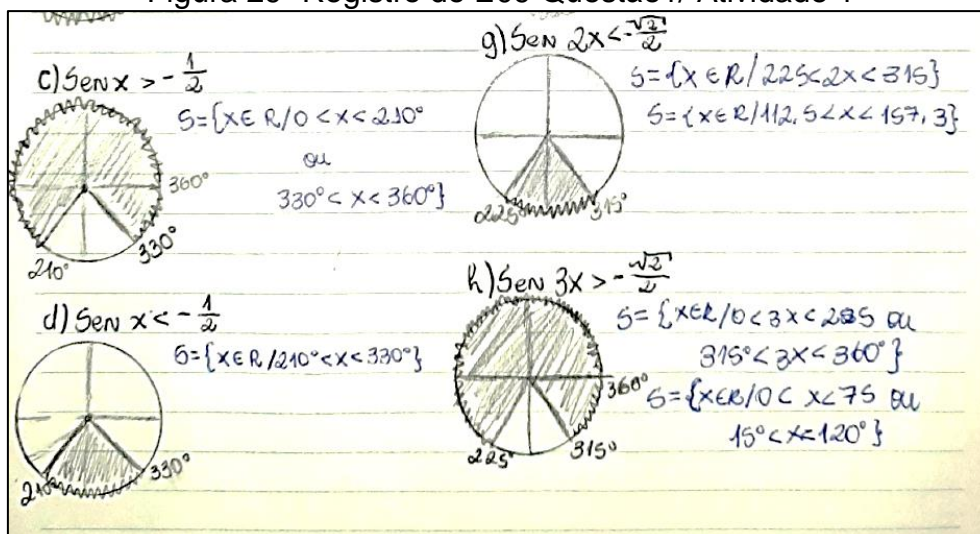 c) Sen x > - 1/2
S={x ∈ R/0 < x < 210°
ou
330° < x < 360°}
360°
330°
210°
d) Sen x < - 1/2
S={x ∈ R/210° < x < 330°}
330°
210°
g) Sen 2x < - √2/2
S={x ∈ R/225<2x<315}
S={x ∈ R/112,5<x<157,3}
225°
315°
h) Sen 3x > - √2/2
S={x∈R/0<3x<225 ou
315°<3x<360°}
360°
S={x∈R/0< x<75 ou
15°<x<120°}
225°
315°